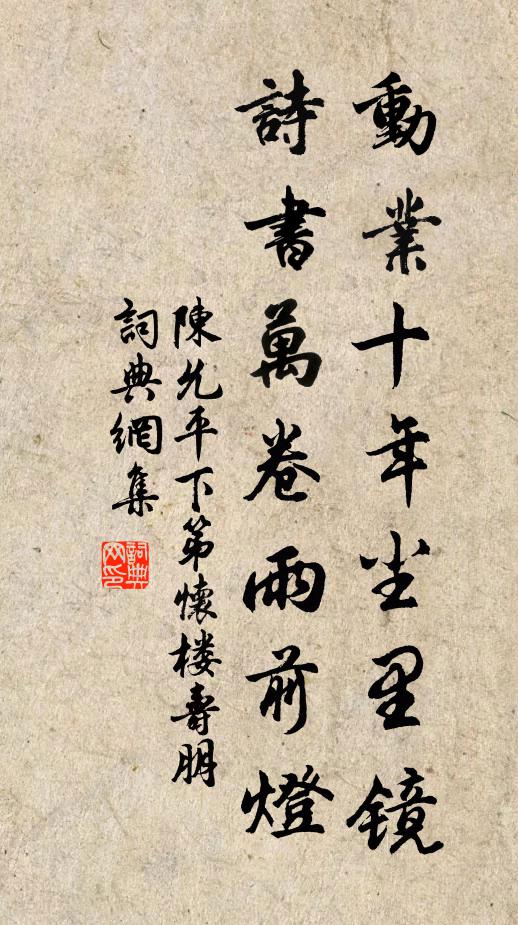 動業十年尘里镜
詩書萬卷雨前燈
陳允平下第懷楼壽朋
詞典網集
詞典网印